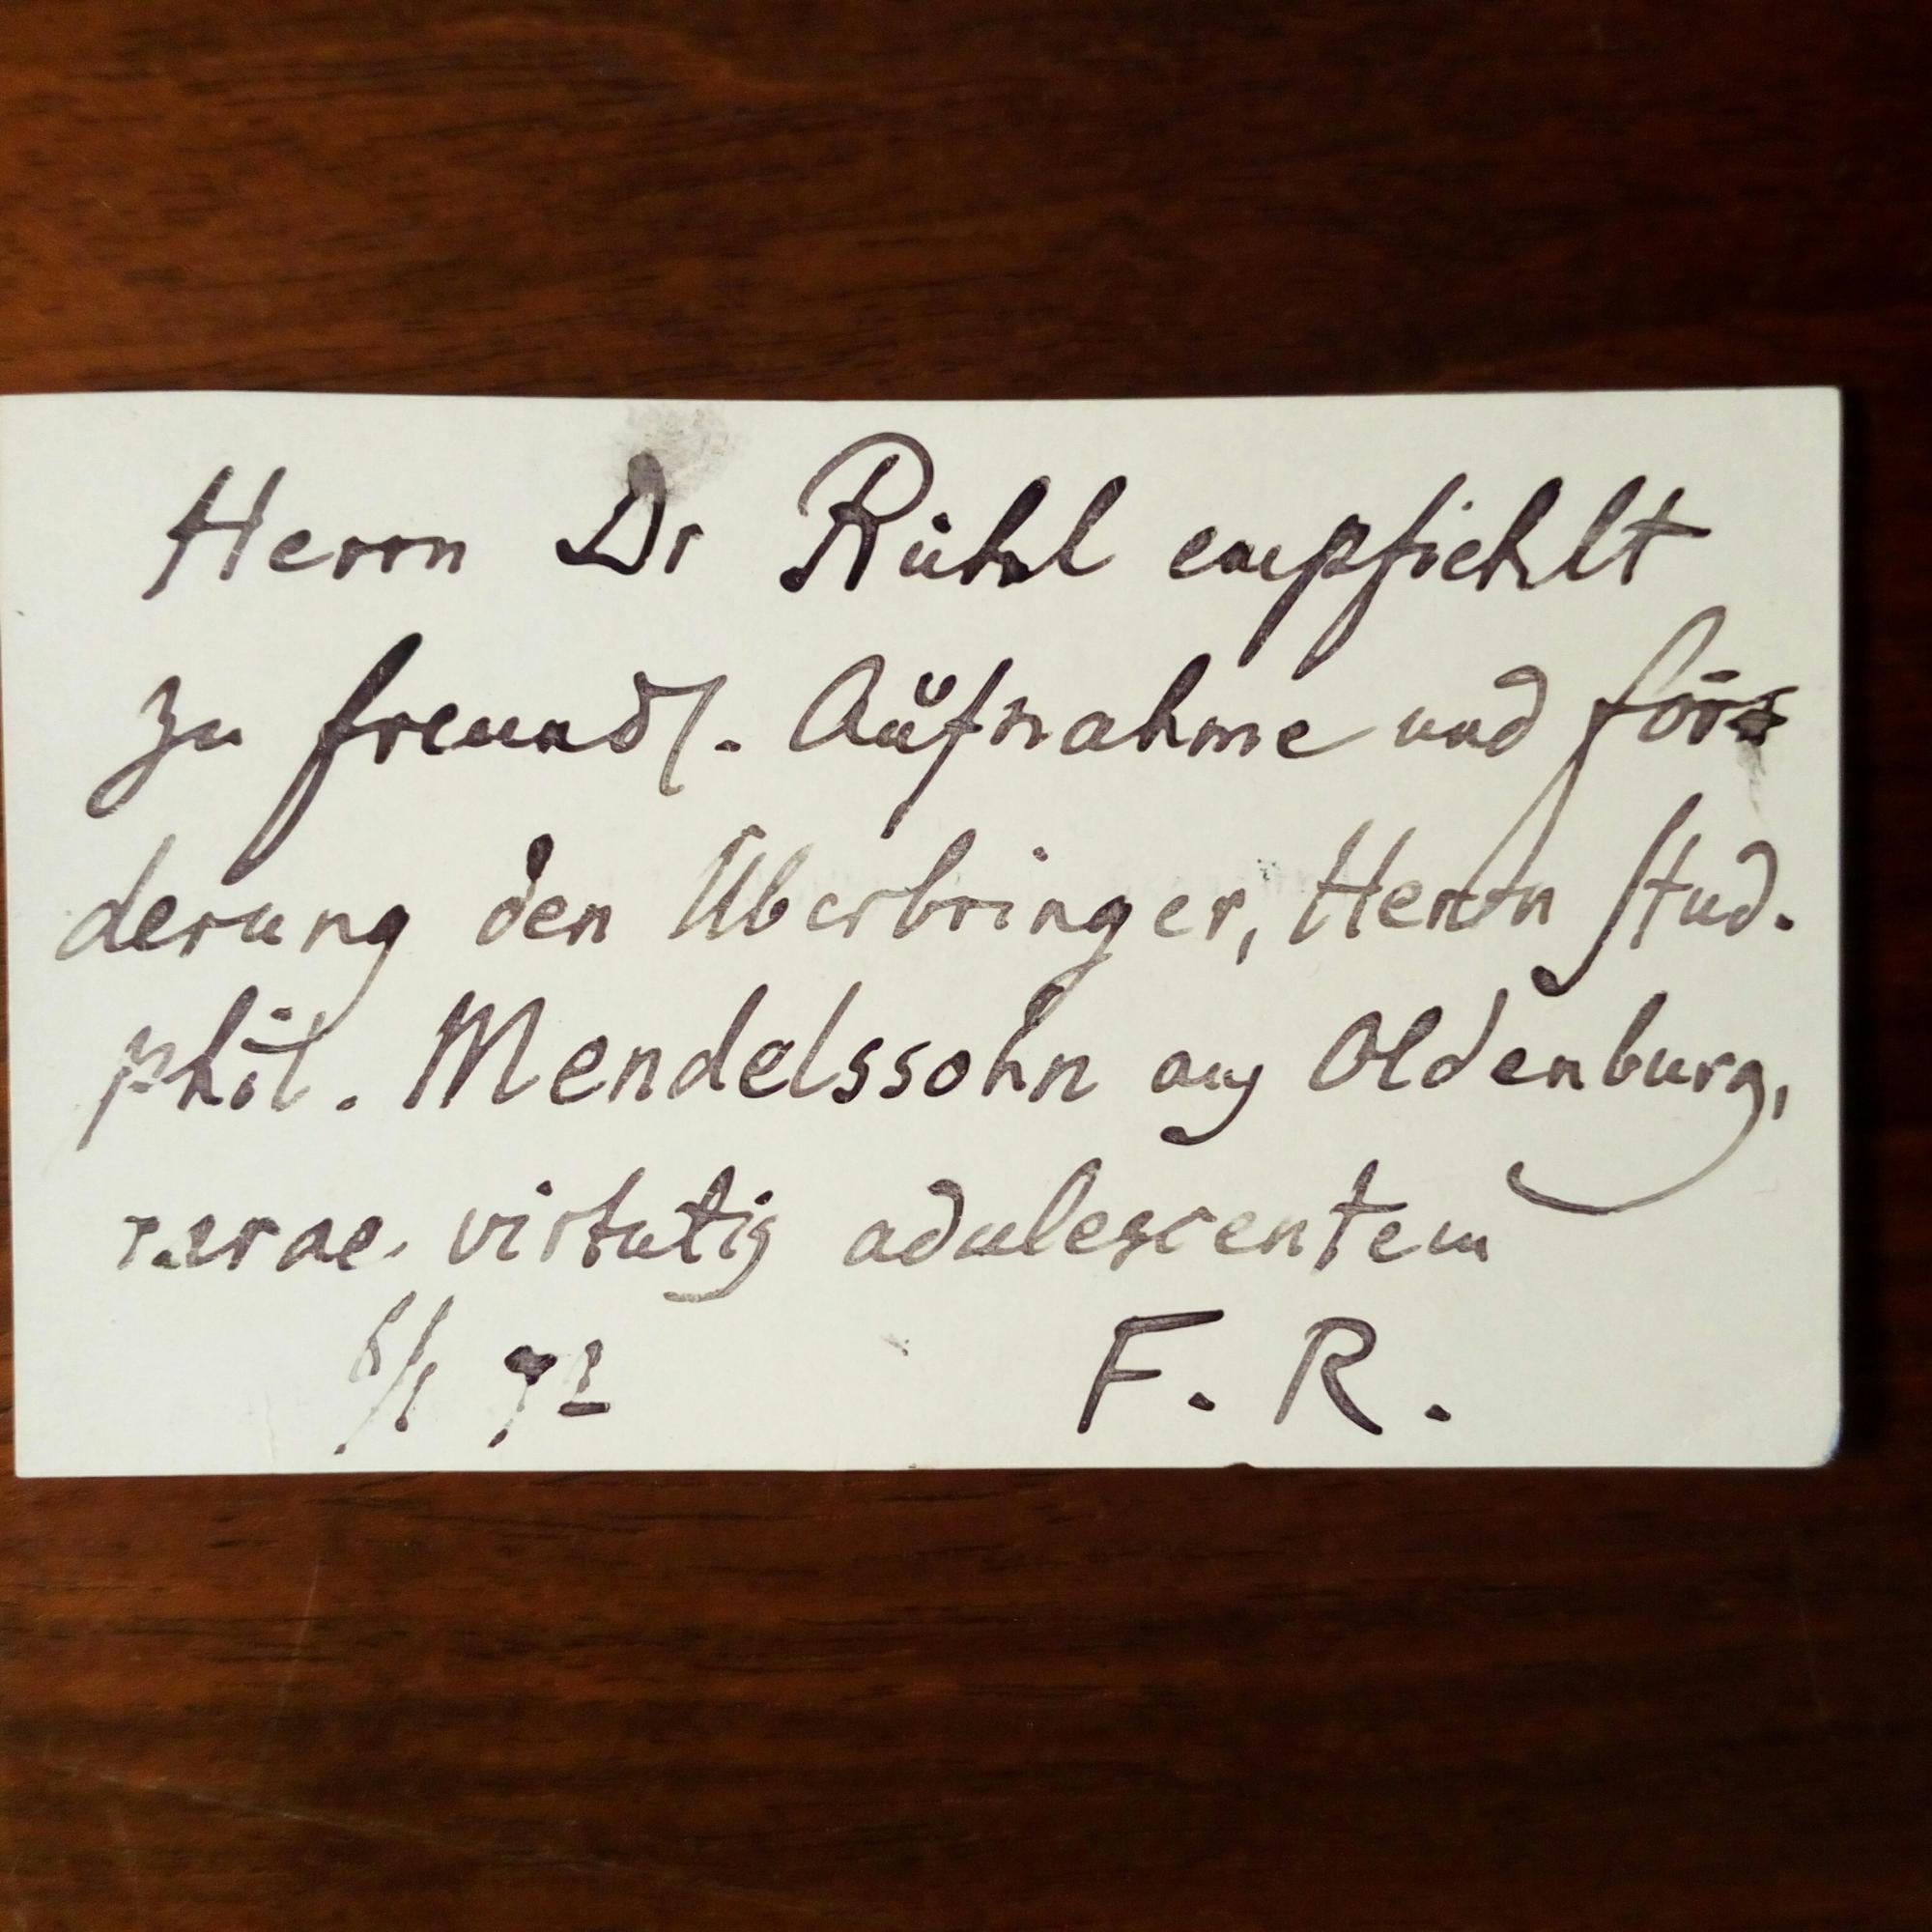 Herrn Dr Rühl empfiehlt
zu freundl. Aufnahme und för-
derung den Überbringer, Herrn stud.
phil. Mendelssohn aus Oldenburg,
rarae virtutis adulescentem
F. R.